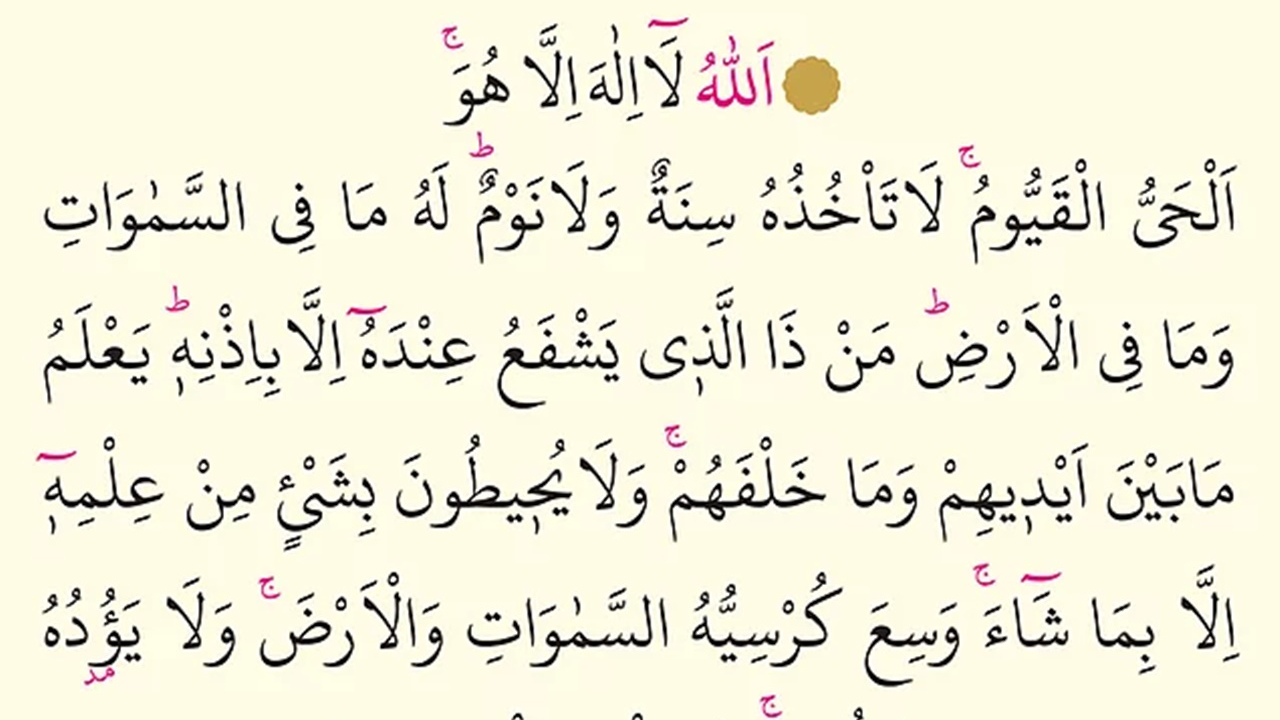 اَللّٰهُ لَٓا اِلٰهَ اِلَّا هُوَۚ
اَلْحَىُّ الْقَيُّومُۚ لَا تَاْخُذُهُ سِنَةٌ وَلَا نَوْمٌۜ لَهُ مَا فِى السَّمٰوَاتِ
وَمَا فِى الْاَرْضِۜ مَنْ ذَا الَّذٖى يَشْفَعُ عِنْدَهُٓ اِلَّا بِاِذْنِهٖۜ يَعْلَمُ
مَا بَيْنَ اَيْدٖيهِمْ وَمَا خَلْفَهُمْۚ وَلَا يُحٖيطُونَ بِشَىْءٍ مِنْ عِلْمِهٖٓ
اِلَّا بِمَا شَٓاءَۚ وَسِعَ كُرْسِيُّهُ السَّمٰوَاتِ وَالْاَرْضَۚ وَلَا يَؤُدُهُ